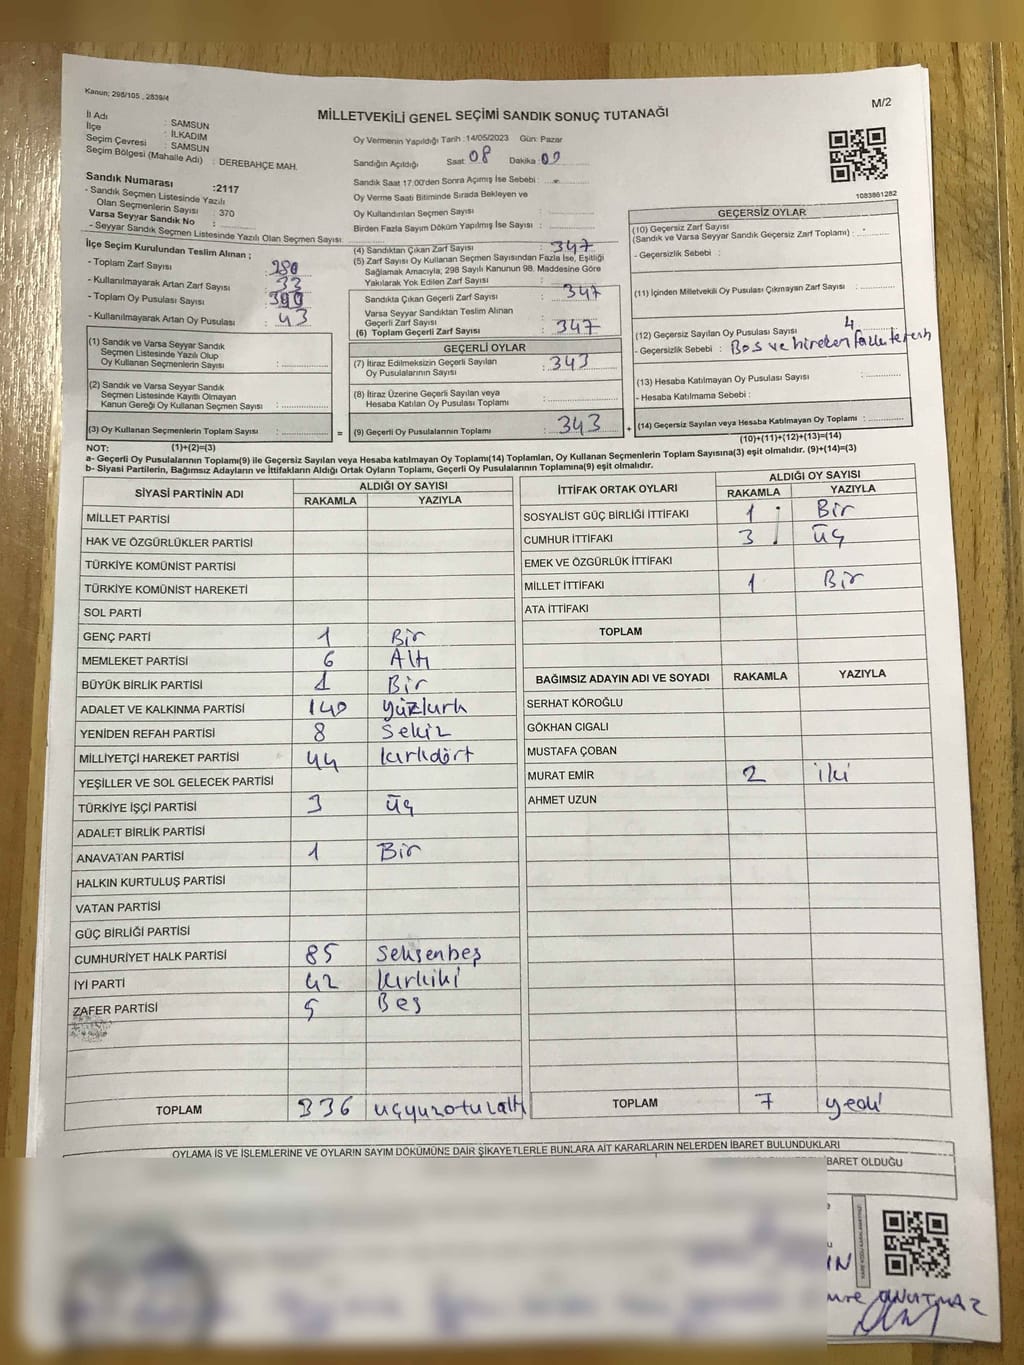 Kanun; 298/105 , 2839/4
M/2
MİLLETVEKİLİ GENEL SEÇİMİ SANDIK SONUÇ TUTANAĞI
İl Adı : SAMSUN
İlçe : İLKADIM
Seçim Çevresi : SAMSUN
Seçim Bölgesi (Mahalle Adı) : DEREBAHÇE MAH.
Sandık Numarası :2117
- Sandık Seçmen Listesinde Yazılı
Olan Seçmenlerin Sayısı : 370
Varsa Seyyar Sandık No :
- Seyyar Sandık Seçmen Listesinde Yazılı Olan Seçmen Sayısı:
İlçe Seçim Kurulundan Teslim Alınan ;
- Toplam Zarf Sayısı :
- Kullanılmayarak Artan Zarf Sayısı : 33
- Toplam Oy Pusulası Sayısı :
- Kullanılmayarak Artan Oy Pusulası : 43
(1) Sandık ve Varsa Seyyar Sandık
Seçmen Listesinde Yazılı Olup
Oy Kullanan Seçmenlerin Sayısı :
(2) Sandık ve Varsa Seyyar Sandık
Seçmen Listesinde Kayıtlı Olmayan
Kanun Gereği Oy Kullanan Seçmen Sayısı :
(3) Oy Kullanan Seçmenlerin Toplam Sayısı :
Oy Vermenin Yapıldığı Tarih :14/05/2023 Gün: Pazar
Sandığın Açıldığı Saat 08 Dakika :00
Sandık Saat 17:00'den Sonra Açılmış İse Sebebi :
Oy Verme Saati Bitiminde Sırada Bekleyen ve
Oy Kullandırılan Seçmen Sayısı :
Birden Fazla Sayım Döküm Yapılmış İse Sayısı :
(4) Sandıktan Çıkan Zarf Sayısı : 347
(5) Zarf Sayısı Oy Kullanan Seçmen Sayısından Fazla İse, Eşitliği
Sağlamak Amacıyla; 298 Sayılı Kanunun 98. Maddesine Göre
Yakılarak Yok Edilen Zarf Sayısı :
Sandıkta Çıkan Geçerli Zarf Sayısı : 347
Varsa Seyyar Sandıktan Teslim Alınan
Geçerli Zarf Sayısı :
(6) Toplam Geçerli Zarf Sayısı : 347
GEÇERLİ OYLAR
(7) İtiraz Edilmeksizin Geçerli Sayılan
Oy Pusulalarının Sayısı : 343
(8) İtiraz Üzerine Geçerli Sayılan veya
Hesaba Katılan Oy Pusulası Toplamı :
= (9) Geçerli Oy Pusulalarının Toplamı : 343
1083861282
GEÇERSİZ OYLAR
(10) Geçersiz Zarf Sayısı
(Sandık ve Varsa Seyyar Sandık Geçersiz Zarf Toplamı) :
- Geçersizlik Sebebi :
(11) İçinden Milletvekili Oy Pusulası Çıkmayan Zarf Sayısı :
(12) Geçersiz Sayılan Oy Pusulası Sayısı : 4
- Geçersizlik Sebebi : Boş ve birden fazla tercih
(13) Hesaba Katılmayan Oy Pusulası Sayısı :
- Hesaba Katılmama Sebebi :
+ (14) Geçersiz Sayılan veya Hesaba Katılmayan Oy Toplamı :
NOT: (1)+(2)=(3) (10)+(11)+(12)+(13)=(14)
a- Geçerli Oy Pusulaları Toplamı(9) ile Geçersiz Sayılan veya Hesaba katılmayan Oy Toplamı(14) Toplamları, Oy Kullanan Seçmenlerin Toplam Sayısına(3) eşit olmalıdır. (9)+(14)=(3)
b- Siyasi Partilerin, Bağımsız Adayların ve İttifakların Aldığı Ortak Oyların Toplamı, Geçerli Oy Pusulalarının Toplamına(9) eşit olmalıdır.
SİYASİ PARTİNİN ADI ALDIĞI OY SAYISI
RAKAMLA YAZIYLA
MİLLET PARTİSİ
HAK VE ÖZGÜRLÜKLER PARTİSİ
TÜRKİYE KOMÜNİST PARTİSİ
TÜRKİYE KOMÜNİST HAREKETİ
SOL PARTİ
GENÇ PARTİ 1 Bir
MEMLEKET PARTİSİ 6 Altı
BÜYÜK BİRLİK PARTİSİ 1 Bir
ADALET VE KALKINMA PARTİSİ 140 yüzkırk
YENİDEN REFAH PARTİSİ 8 Sekiz
MİLLİYETÇİ HAREKET PARTİSİ 44 kırkdört
YEŞİLLER VE SOL GELECEK PARTİSİ
TÜRKİYE İŞÇİ PARTİSİ 3 üç
ADALET BİRLİK PARTİSİ
ANAVATAN PARTİSİ 1 Bir
HALKIN KURTULUŞ PARTİSİ
VATAN PARTİSİ
GÜÇ BİRLİĞİ PARTİSİ
CUMHURİYET HALK PARTİSİ 85 Seksenbeş
İYİ PARTİ 42 kırkiki
ZAFER PARTİSİ 5 Beş
TOPLAM 336 üçyüzotuzaltı
İTTİFAK ORTAK OYLARI ALDIĞI OY SAYISI
RAKAMLA YAZIYLA
SOSYALİST GÜÇ BİRLİĞİ İTTİFAKI 1 Bir
CUMHUR İTTİFAKI 3 üç
EMEK VE ÖZGÜRLÜK İTTİFAKI
MİLLET İTTİFAKI 1 Bir
ATA İTTİFAKI
TOPLAM
BAĞIMSIZ ADAYIN ADI VE SOYADI RAKAMLA YAZIYLA
SERHAT KÖROĞLU
GÖKHAN CIGALI
MUSTAFA ÇOBAN
MURAT EMİR 2 iki
AHMET UZUN
TOPLAM 7 yedi
OYLAMA İŞ VE İŞLEMLERİNE VE OYLARIN SAYIM DÖKÜMÜNE DAİR ŞİKAYETLERLE BUNLARA AİT KARARLARIN NELERDEN İBARET BULUNDUKLARI
BARET OLDUĞU
UNUTMAZ